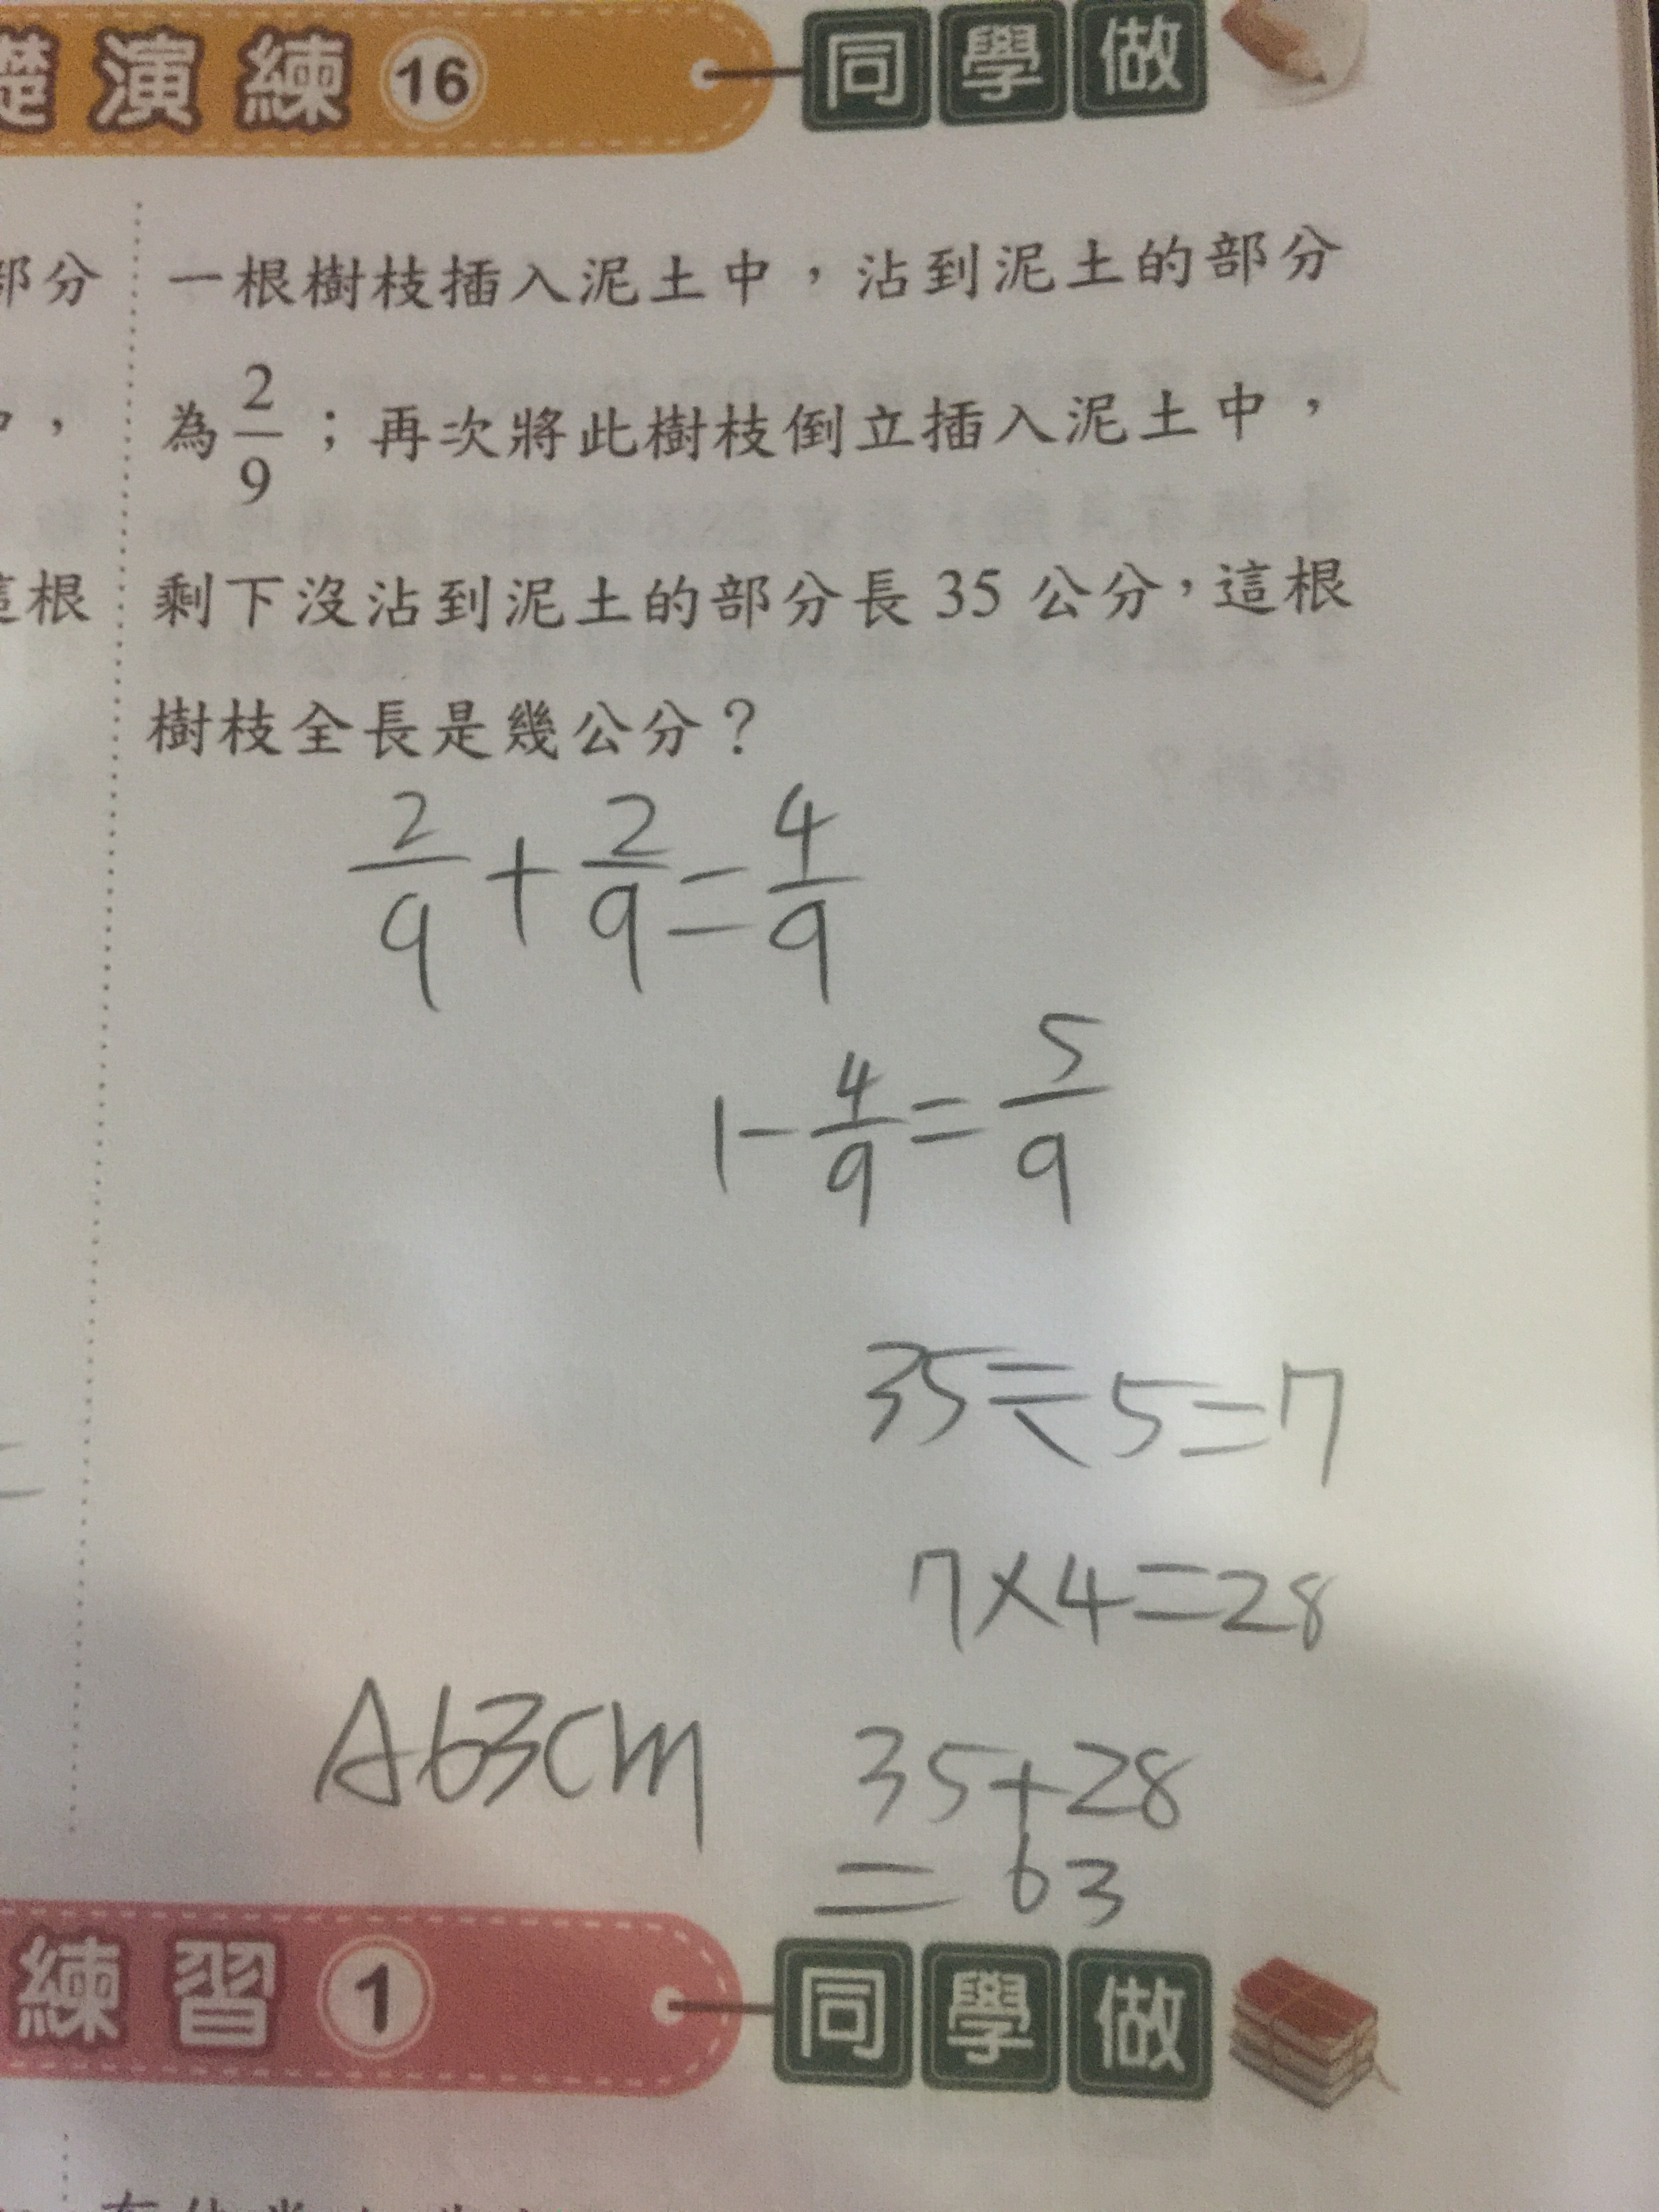 礎演練 16 同學做
部分
一根樹枝插入泥土中，沾到泥土的部分
，
為 2/9 ；再次將此樹枝倒立插入泥土中，
這根
剩下沒沾到泥土的部分長 35 公分，這根
樹枝全長是幾公分？
2/9 + 2/9 = 4/9
1 - 4/9 = 5/9
35 ÷ 5 = 7
7 × 4 = 28
A 63cm
35 + 28
= 63
練習 1 同學做